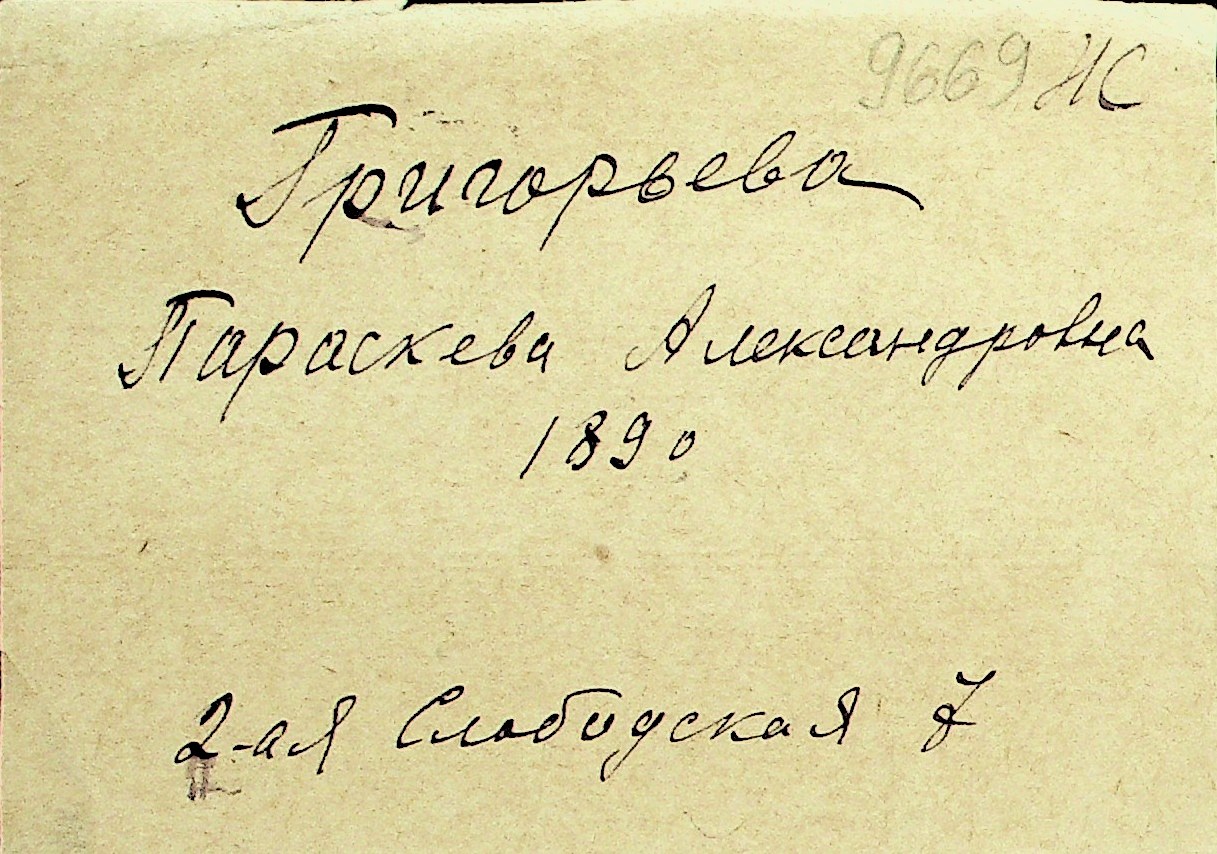 9669 НС
Григорьева
Параскева Александровна
1890
2-ая Слободская 7